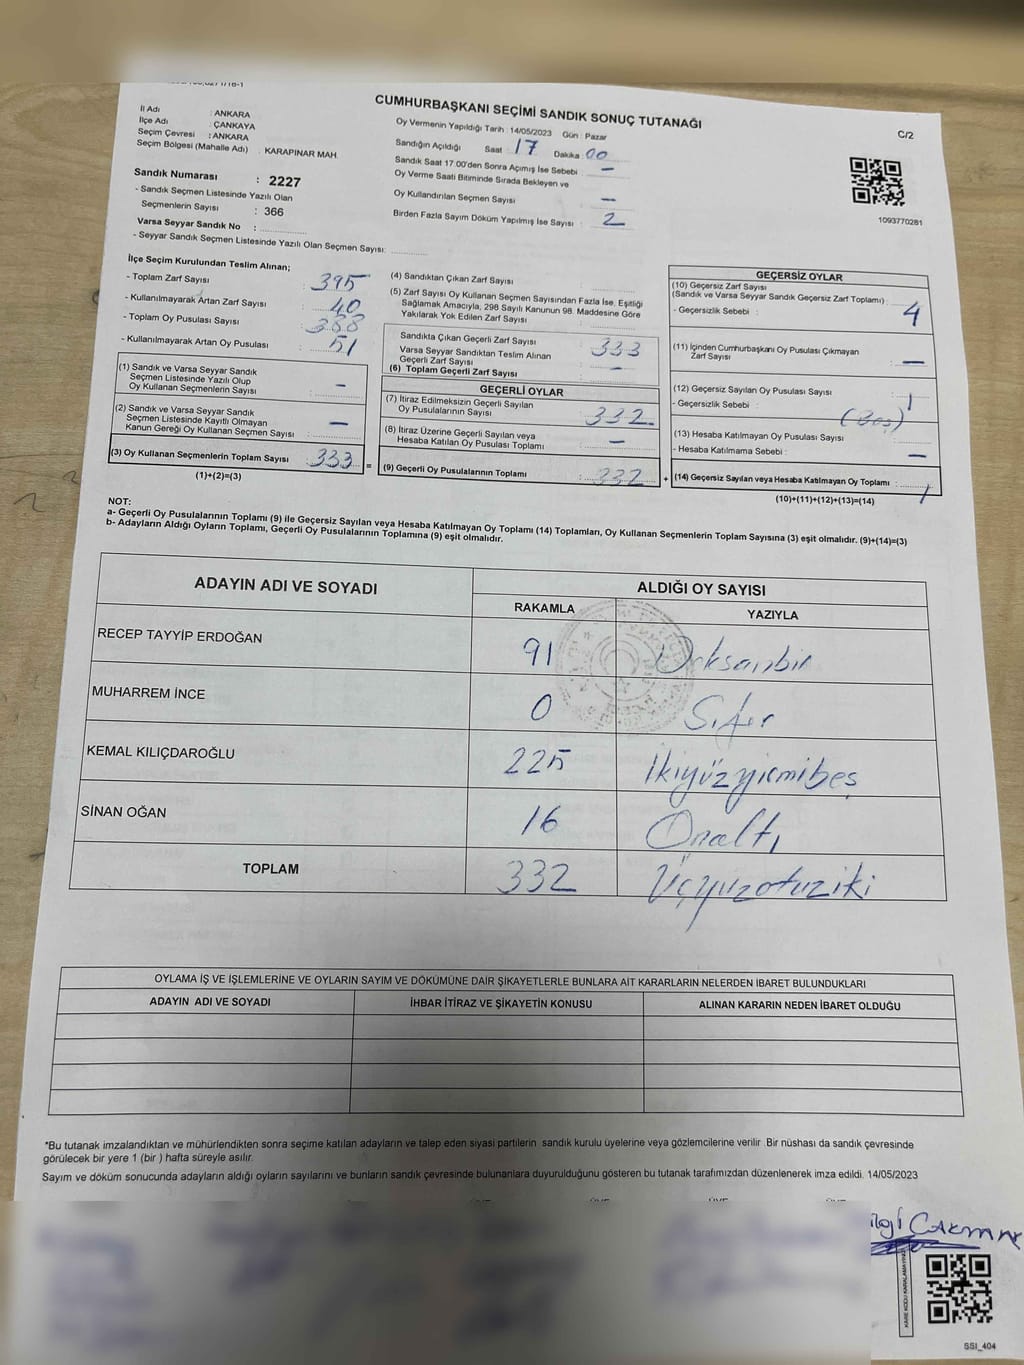 CUMHURBAŞKANI SEÇİMİ SANDIK SONUÇ TUTANAĞI
C/2
İl Adı : ANKARA
İlçe Adı : ÇANKAYA
Seçim Çevresi : ANKARA
Seçim Bölgesi (Mahalle Adı) : KARAPINAR MAH.
Sandık Numarası : 2227
- Sandık Seçmen Listesinde Yazılı Olan
Seçmenlerin Sayısı : 366
Varsa Seyyar Sandık No :
- Seyyar Sandık Seçmen Listesinde Yazılı Olan Seçmen Sayısı:
Oy Vermenin Yapıldığı Tarih : 14/05/2023 Gün : Pazar
Sandığın Açıldığı Saat : 17 Dakika : 00
Sandık Saat 17:00'den Sonra Açımış İse Sebebi : -
Oy Verme Saati Bitiminde Sırada Bekleyen ve
Oy Kullandırılan Seçmen Sayısı -
Birden Fazla Sayım Döküm Yapılmış İse Sayısı : 2
1093770281
İlçe Seçim Kurulundan Teslim Alınan;
- Toplam Zarf Sayısı : 395
- Kullanılmayarak Artan Zarf Sayısı : 40
- Toplam Oy Pusulası Sayısı : 388
- Kullanılmayarak Artan Oy Pusulası : 51
(1) Sandık ve Varsa Seyyar Sandık
Seçmen Listesinde Yazılı Olup
Oy Kullanan Seçmenlerin Sayısı : -
(2) Sandık ve Varsa Seyyar Sandık
Seçmen Listesinde Kayıtlı Olmayan
Kanun Gereği Oy Kullanan Seçmen Sayısı : -
(3) Oy Kullanan Seçmenlerin Toplam Sayısı : 333
(1)+(2)=(3)
=
(4) Sandıktan Çıkan Zarf Sayısı :
(5) Zarf Sayısı Oy Kullanan Seçmen Sayısından Fazla İse, Eşitliği
Sağlamak Amacıyla, 298 Sayılı Kanunun 98. Maddesine Göre
Yakılarak Yok Edilen Zarf Sayısı :
Sandıkta Çıkan Geçerli Zarf Sayısı : 333
Varsa Seyyar Sandıktan Teslim Alınan
Geçerli Zarf Sayısı : -
(6) Toplam Geçerli Zarf Sayısı :
GEÇERLİ OYLAR
(7) İtiraz Edilmeksizin Geçerli Sayılan
Oy Pusulalarının Sayısı : 332
(8) İtiraz Üzerine Geçerli Sayılan veya
Hesaba Katılan Oy Pusulası Toplamı : -
(9) Geçerli Oy Pusulalarının Toplamı : 332
+
GEÇERSİZ OYLAR
(10) Geçersiz Zarf Sayısı
(Sandık ve Varsa Seyyar Sandık Geçersiz Zarf Toplamı) : 4
- Geçersizlik Sebebi :
(11) İçinden Cumhurbaşkanı Oy Pusulası Çıkmayan
Zarf Sayısı : -
(12) Geçersiz Sayılan Oy Pusulası Sayısı : 1
- Geçersizlik Sebebi : (Boş)
(13) Hesaba Katılmayan Oy Pusulası Sayısı :
- Hesaba Katılmama Sebebi : -
(14) Geçersiz Sayılan veya Hesaba Katılmayan Oy Toplamı : 1
(10)+(11)+(12)+(13)=(14)
NOT:
a- Geçerli Oy Pusulalarının Toplamı (9) ile Geçersiz Sayılan veya Hesaba Katılmayan Oy Toplamı (14) Toplamları, Oy Kullanan Seçmenlerin Toplam Sayısına (3) eşit olmalıdır. (9)+(14)=(3)
b- Adayların Aldığı Oyların Toplamı, Geçerli Oy Pusulalarının Toplamına (9) eşit olmalıdır.
ADAYIN ADI VE SOYADI ALDIĞI OY SAYISI
RAKAMLA YAZIYLA
RECEP TAYYİP ERDOĞAN 91 Doksanbir
MUHARREM İNCE 0 Sıfır
KEMAL KILIÇDAROĞLU 225 İkiyüzyirmibeş
SİNAN OĞAN 16 Onaltı
TOPLAM 332 Üçyüzotuziki
OYLAMA İŞ VE İŞLEMLERİNE VE OYLARIN SAYIM VE DÖKÜMÜNE DAİR ŞİKAYETLERLE BUNLARA AİT KARARLARIN NELERDEN İBARET BULUNDUKLARI
ADAYIN ADI VE SOYADI İHBAR İTİRAZ VE ŞİKAYETİN KONUSU ALINAN KARARIN NEDEN İBARET OLDUĞU
*Bu tutanak imzalandıktan ve mühürlendikten sonra seçime katılan adayların ve talep eden siyasi partilerin sandık kurulu üyelerine veya gözlemcilerine verilir .Bir nüshası da sandık çevresinde
görülecek bir yere 1 (bir ) hafta süreyle asılır.
Sayım ve döküm sonucunda adayların aldığı oyların sayılarını ve bunların sandık çevresinde bulunanlara duyurulduğunu gösteren bu tutanak tarafımızdan düzenlenerek imza edildi. 14/05/2023
ÇAKMAK
SSI_404